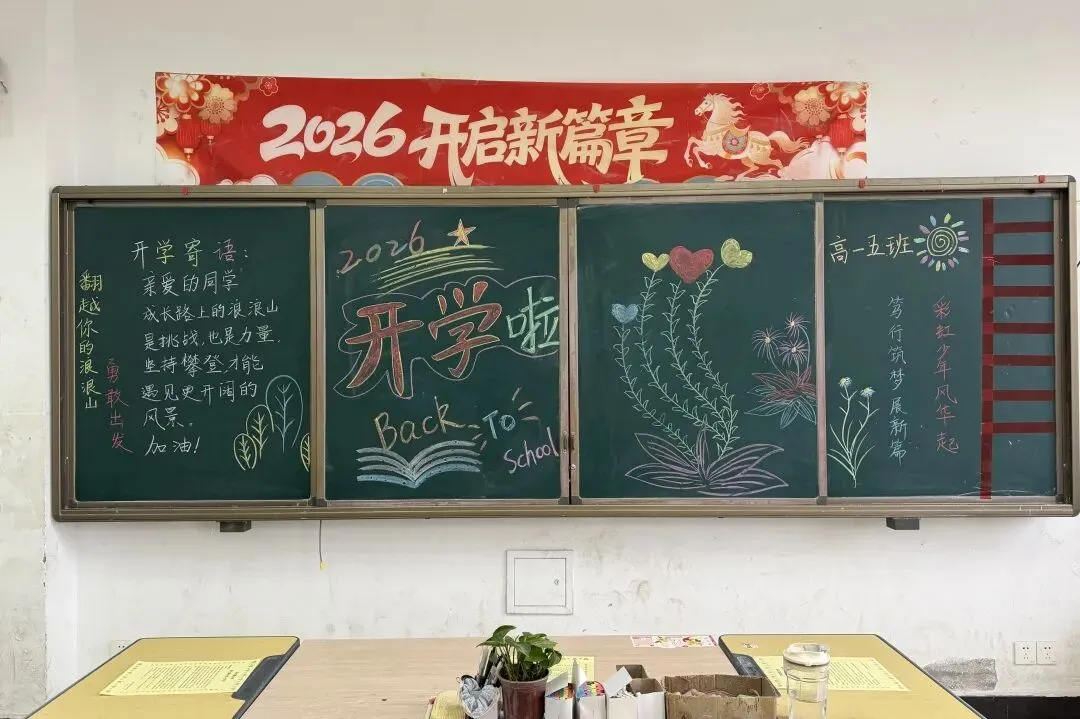 2026 开启新篇章
翻越你的浪浪山
勇敢出发
开学寄语：
亲爱的同学
成长路上的浪浪山
是挑战，也是力量，
坚持攀登，才能
遇见更开阔的
风景。
加油！
2026
开学啦
Back To
School
高一五班
彩虹少年风华起
笃行筑梦展新篇